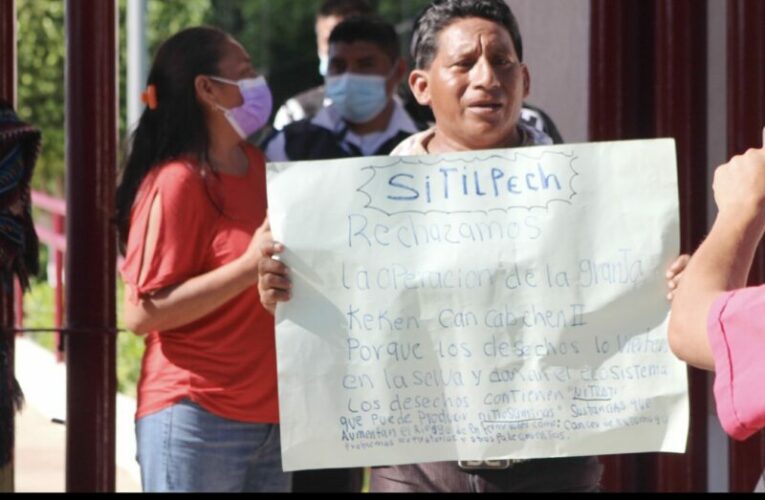 SiTiLPECh
Rechazamos
La operacion de la granJa
KeKen-Can Cabchen II
Porque los desechos lo Vierten
en la selva y dañan el ecosistema
Los desechos contienen "NITRATO"
que puede Producir nitrosaminas" Sustancias que
Aumentan el Riesgo de Enfermedades como: Cancer de
Problemas respiratorios y otros Padecimientos.